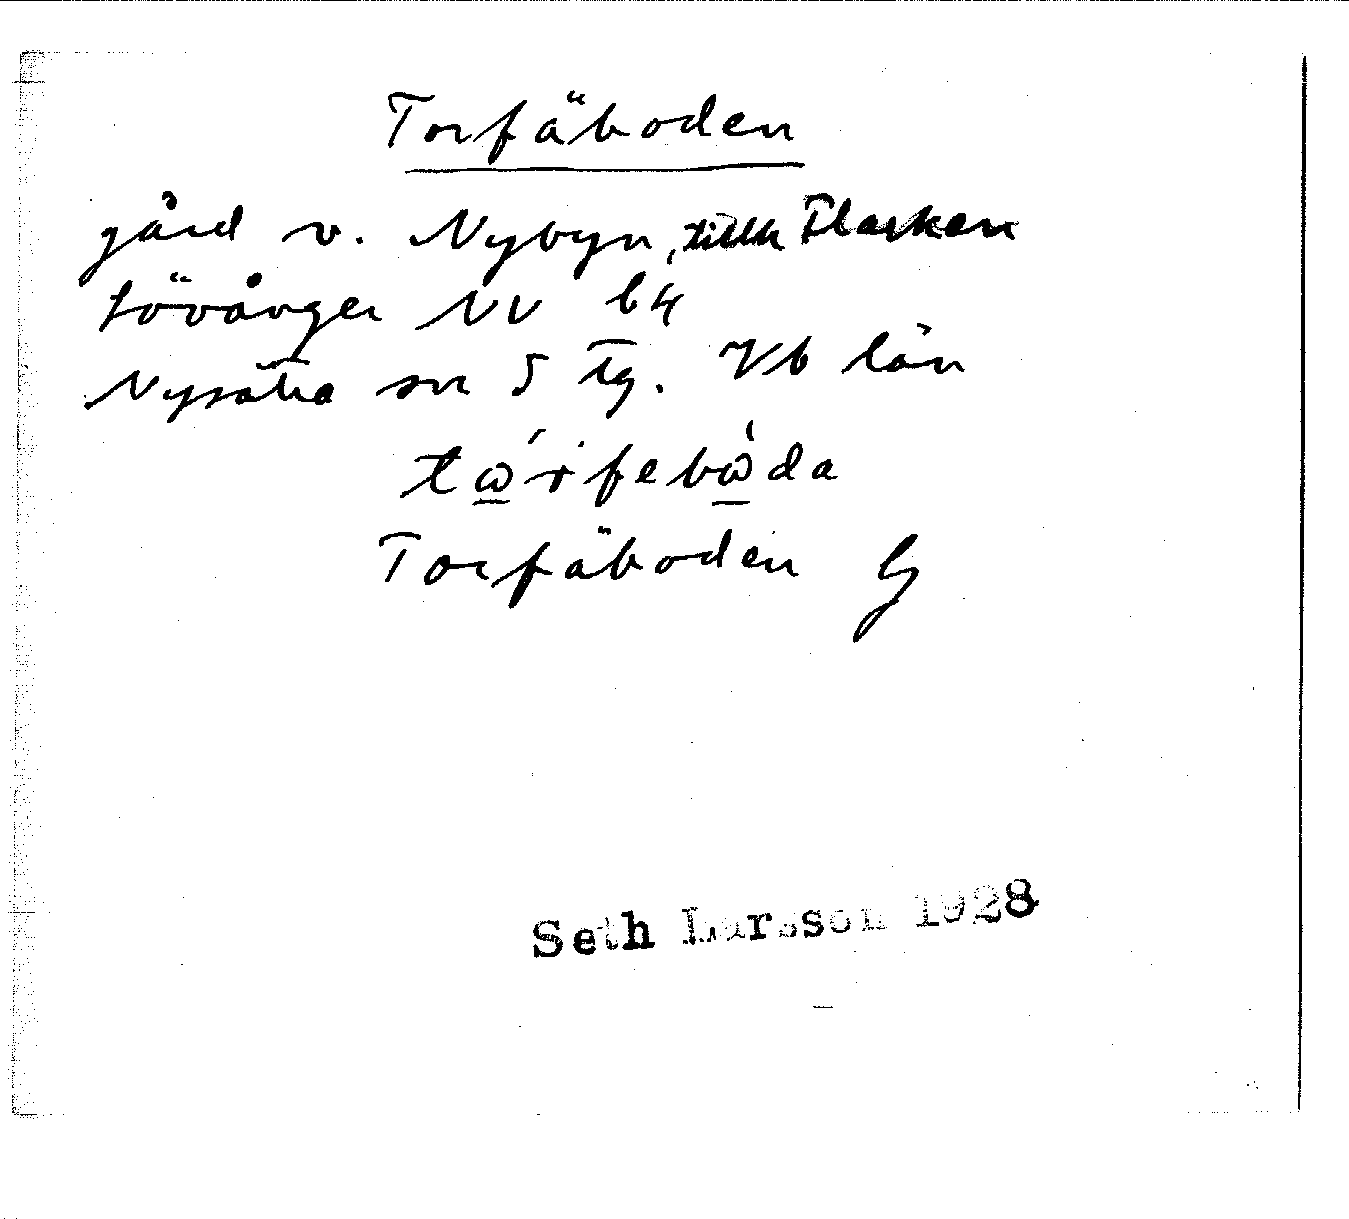 Torfäboden
gård v. Nybyn, tillh Flarken
Lövånger NV b4
Nysätra sn S Tg. Vb län
tώrfebὼda
Torfäboden G
Seth Larsson 1928